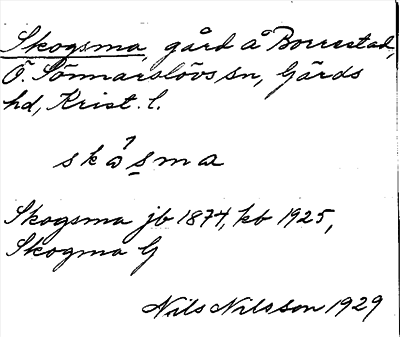 Skogsma, gård å Borrestad,
Ö. Sönnarslövs sn, Gärds
hd, Krist. l.
skå̀s̲ma
Skogsma jb 1874, kb 1925,
Skogma G
Nils Nilsson 1929